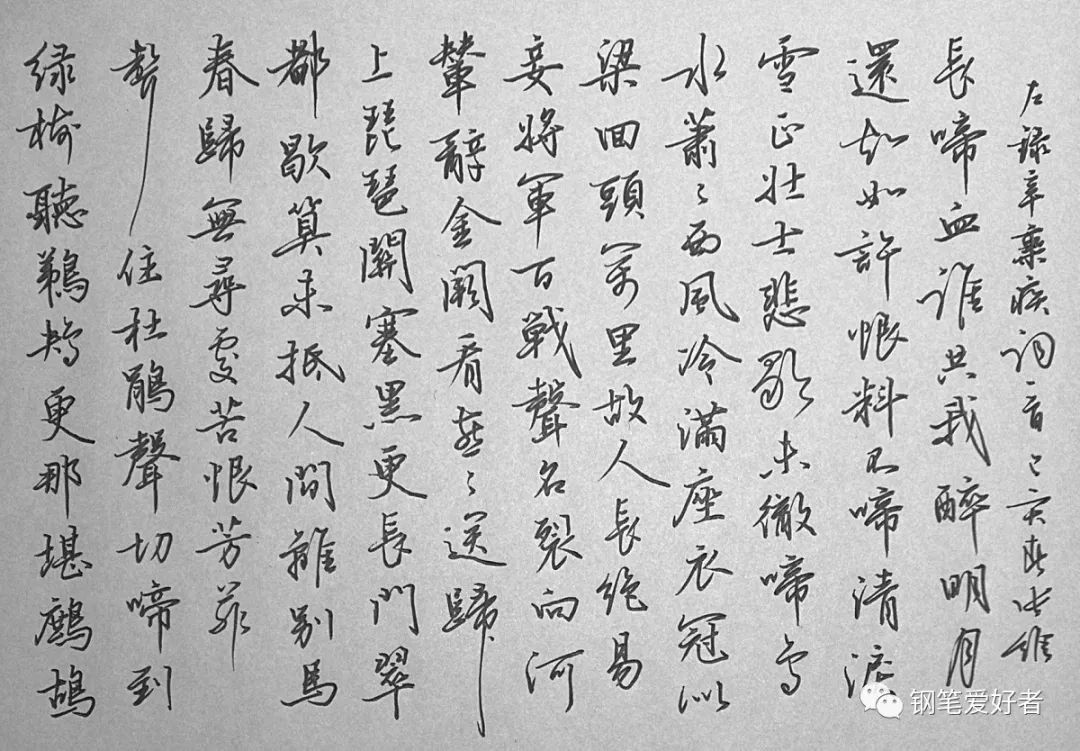 緑樹聽鵜鴂更那堪鷓鴣
聲住杜鵑聲切啼到
春歸無尋處苦恨芳菲
都歇算未抵人間離别馬
上琵琶關塞黑更長門翠
輦辭金闕看燕〻送歸
妾將軍百戰聲名裂向河
梁回頭萬里故人長絶易
水蕭〻西風冷滿座衣冠似
雪正壯士悲歌未徹啼鳥
還知如許恨料不啼清淚
長啼血誰共我醉明月
左録辛棄疾詞一首己亥春
钢笔爱好者